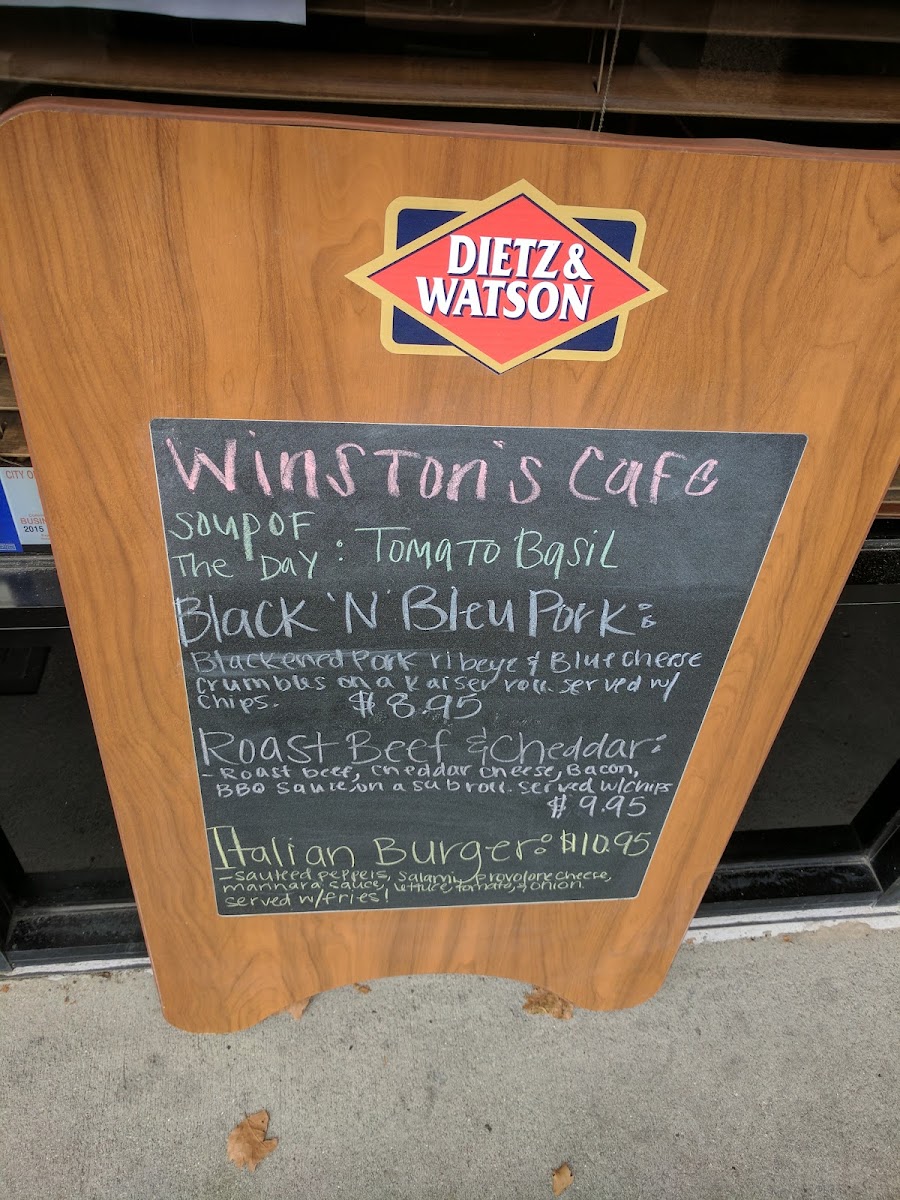 DIETZ &
WATSON
Winston's Cafe
Soup of
The Day : Tomato Basil
Black 'N' Bleu Pork:
Blackened Pork ribeye & Blue cheese
crumbles on a kaiser roll. served w/
chips. $8.95
Roast Beef & Cheddar:
- Roast beef, cheddar cheese, Bacon,
BBQ sauce, on a sub roll. served w/chips
$9.95
Italian Burger: $10.95
- sauteed peppers, salami, provolone cheese,
marinara sauce, lettuce, tomato, & onion.
served w/fries!
CITY O
BUSIN
2015